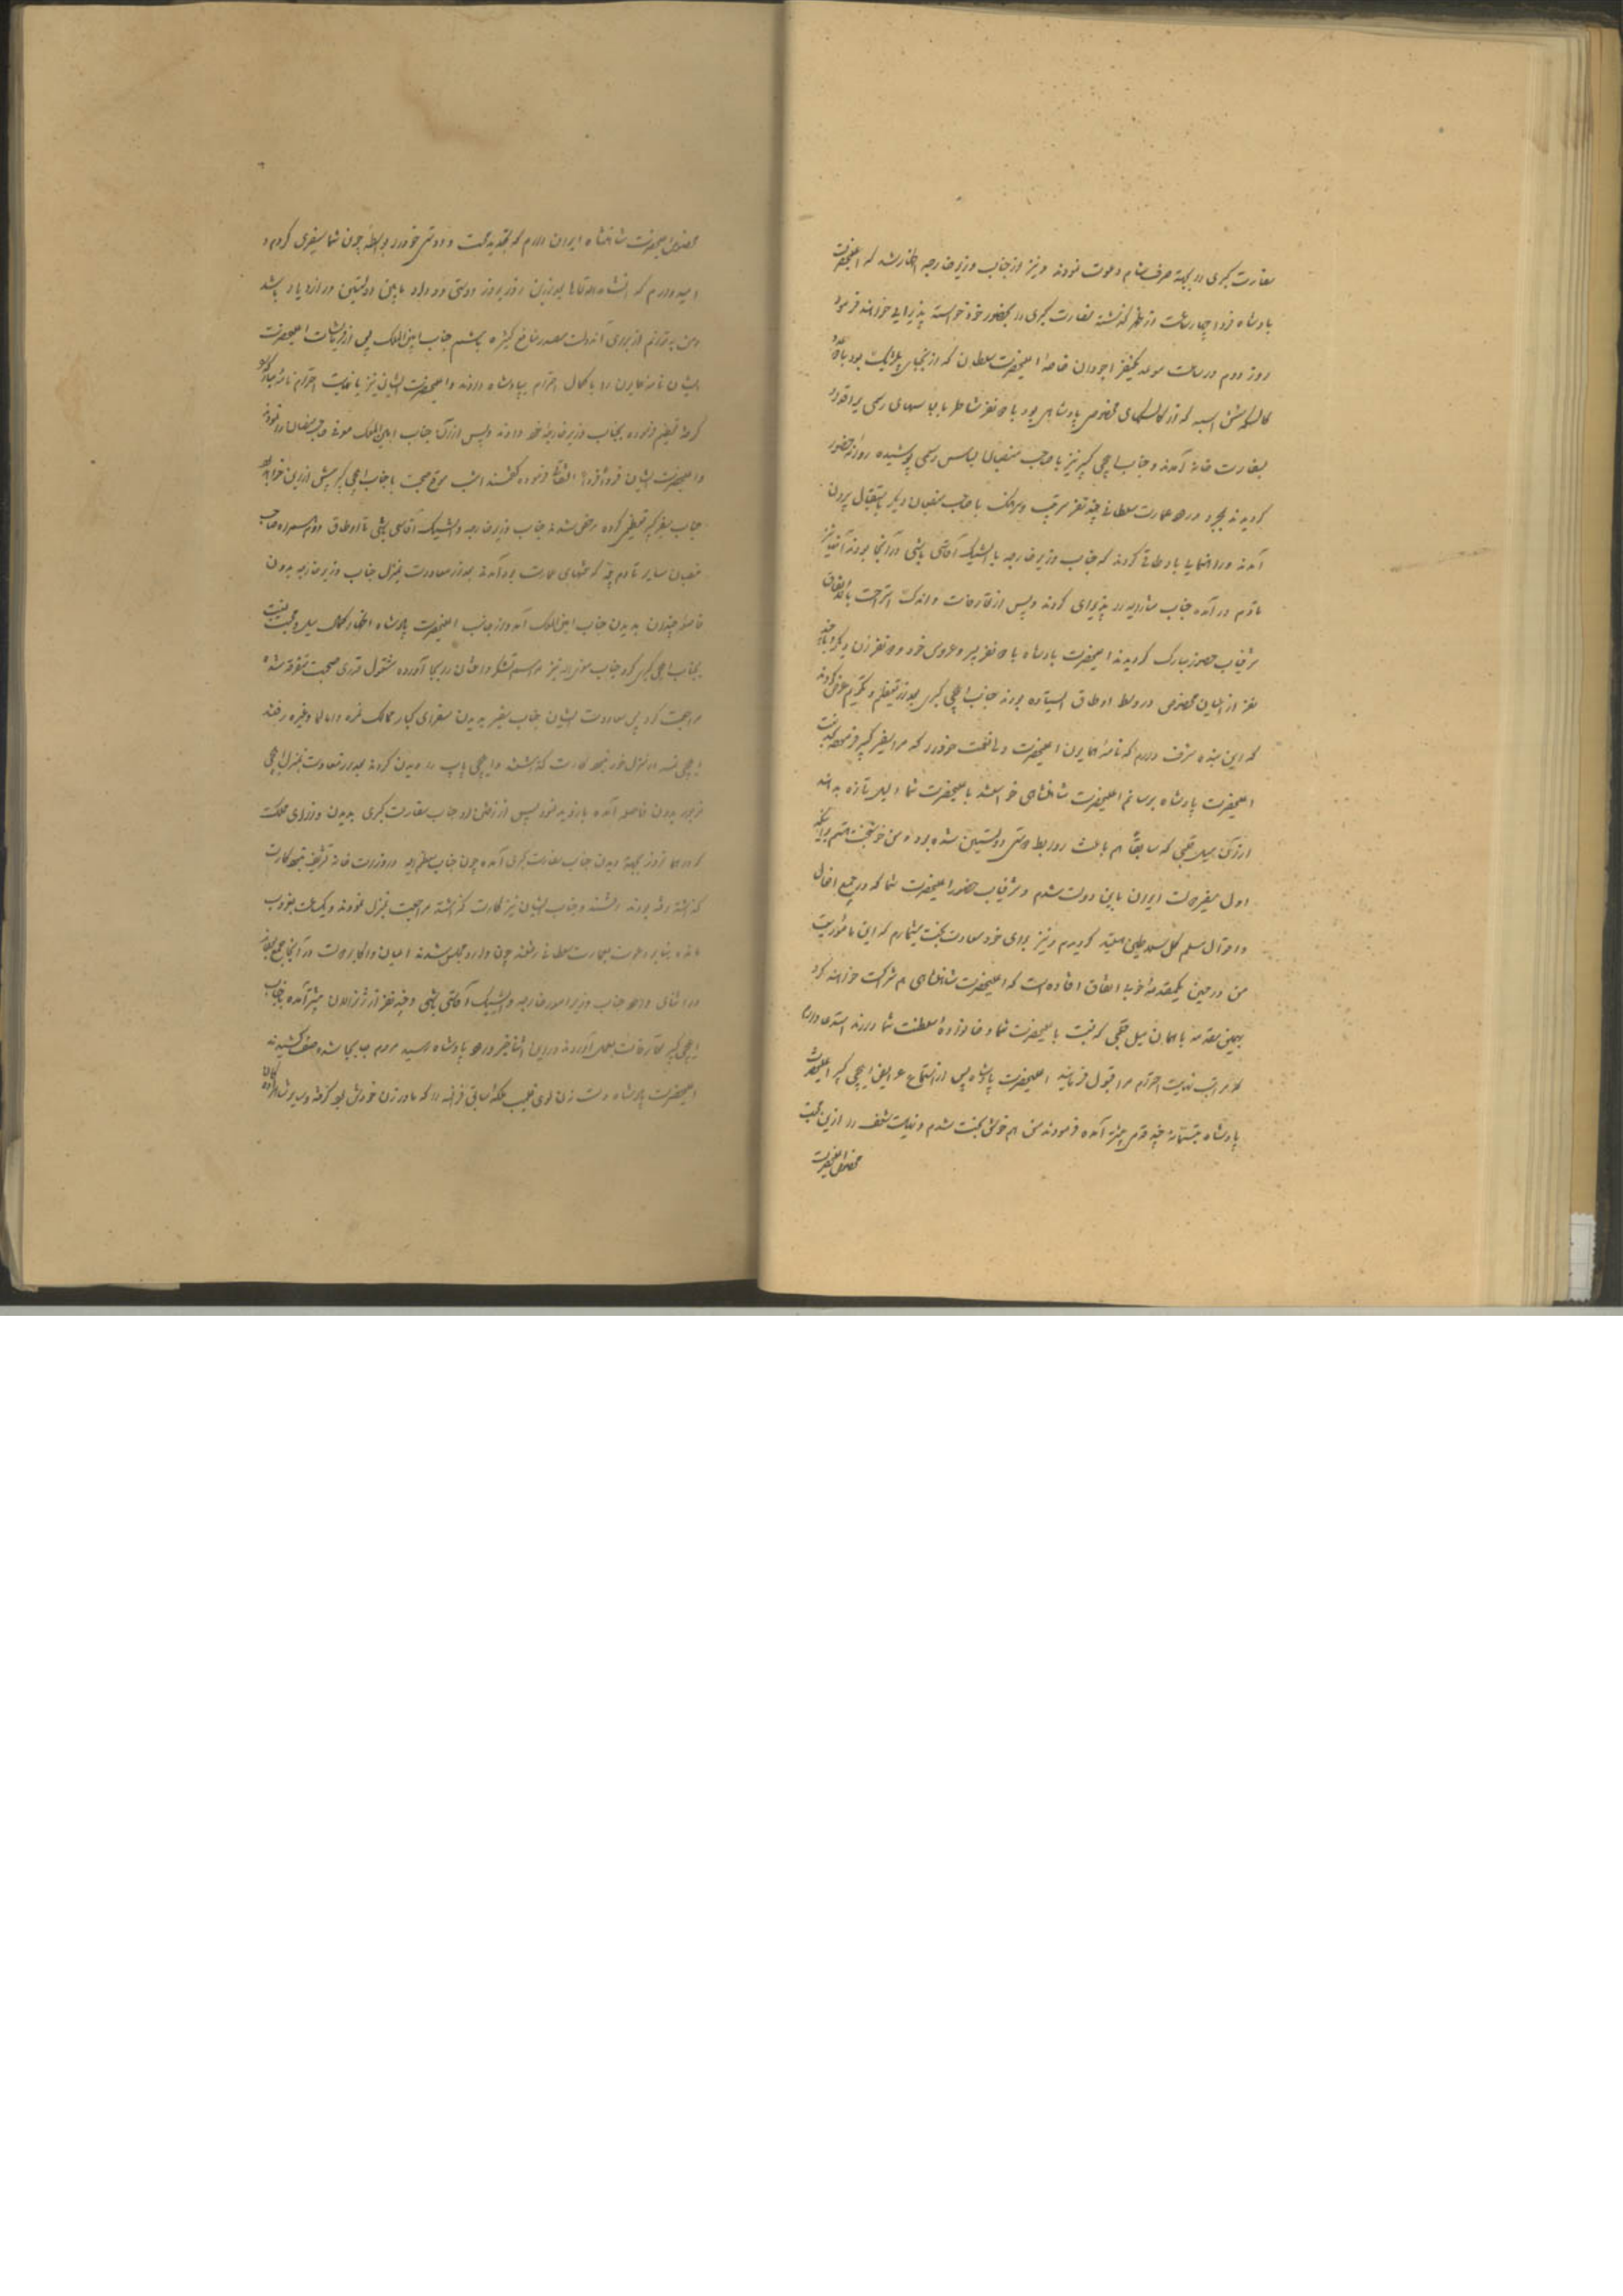 سفارت کبری را بجهة صرف شام دعوت نمودند و نیز از جانب وزیر خارجه اظهار شد که اعلیحضرت
پادشاه فردا چهار ساعت از ظهر گذشته سفارت کبری را بحضور خود خواسته پذیرایی خواهند فرمود
روز دوم در ساعت موعد یکنفر اجودان خاصهٔ اعلیحضرت سلطان که از نجبای بود با
کالسکه شش اسبه که از کالسکهای مخصوص پادشاهی بود با نفر شاطر با لباسهای رسمی
بسفارت خانه آمدند و جناب ایلچی کبیر نیز با صاحب منصبان لباس رسمی پوشیده روانه حضور
گردیدند بمجرد ورود عمارت سلطانی چند نفر سرتیپ و سرهنگ با صاحب منصبان دیگر باستقبال بیرون
آمدند و راهنمایی باوطاقی کردند که جناب وزیر خارجه با ایشیک آقاسی باشی در آنجا بودند آنها نیز
تا دم در آمده جناب مشارالیه را پذیرای کردند و پس از تعارفات و اندک استراحت باتفاق
شرفیاب حضور مبارک گردیدند اعلیحضرت پادشاه با نفر پسر و عروس خود و نفر زن دیگر و چند
نفر از اعیان مخصوص در وسط اوطاق ایستاده بودند جناب ایلچی کبری بعد از تعظیم و تکریم عرض کردند
که این بنده شرف دارم که نامهٔ همایون اعلیحضرت ولینعمت خود را که مرا سفیر کبیر فرموده بخدمت
اعلیحضرت پادشاه برسانم اعلیحضرت شاهنشاهی خواستند باعلیحضرت شما دلیل تازه بدهند
از آن میل قلبی که سابقاً هم باعث روابط دوستی دولتین شده بود و من خوشبخت هستم برای اینکه
اول سفیر دولت ایران باین دولت شدم و شرفیاب حضور اعلیحضرت شما که در جمیع افعال
و احوال مسلم کل هستید گردیدم و نیز برای خود سعادت بخت میشمارم که این مأموریت
من در حین یکمقدمهٔ خوب اتفاق افتاده است که اعلیحضرت شاهنشاهی هم شرکت خواهند کرد
بهمین مقدمه با همان میل قلبی که نسبت باعلیحضرت شما و خانوادهٔ سلطنت شما دارند استدعا دارم
که مراتب نهایت احترام مرا قبول فرمایند اعلیحضرت پادشاه پس از استماع عرایض ایلچی کبیر اعلیحضرت
پادشاه متبسمانه چند قدمی پیشتر آمده فرمودند من هم خوش بخت شدم و نهایت شعف را ازین محبت
مخصوص اعلیحضرت
مخصوص اعلیحضرت شاهنشاه ایران دارم که تجدید محبت و دوستی خود را بواسطه چون شما سفیری کردم و
امیدوارم که انشاءالله تعالی بعد ازین روز بروز دوستی و وداد مابین دولتین در ازدیاد باشد
و من بتوانم از برای آندولت مصدر منافع کثیره باشم جناب امین الملک پس از فرمایشات اعلیحضرت
ایشان نامه همایون را با کمال احترام بپادشاه دادند و اعلیحضرت ایشان نیز با نهایت احترام نامه مبارک
گرفته تعظیم فرموده بجناب وزیر خارجه خود دادند و پس از آن جناب امین الملک معرفی صاحب منصبان را نمودند
و اعلیحضرت ایشان فرداً فرداً التفات فرموده گفتند امشب موقع صحبت با جناب ایلچی کبیر بیش ازین خواهد بود
جناب سفیر کبیر تعظیمی کرده مرخص شدند جناب وزیر خارجه و ایشیک آقاسی باشی تا اوطاق دوم همراه صاحب
منصبان سایر تا دم پله که منتهای عمارت بود آمدند بعد از معاودت بمنزل جناب وزیر خارجه بدون
فاصلهٔ چندان بدیدن جناب امین الملک آمد و از جانب اعلیحضرت پادشاه اظهار کمال میل و محبت نسبت
بجناب ایلچی کبری کرد جناب معزی الیه نیز مراسم تشکر و امتنان را بجا آورده مشغول قدری صحبت متفرقه شده
مراجعت کرد پس معاودت ایشان جناب سفیر بدیدن سفرای کبار ممالک نمسه و المانیا و غیره رفتند
ایلچی نمسه در منزل خود نبود کارت گذاشتند و ایلچی پاپ را دیدن کردند بعد از معاودت بمنزل ایلچی
مزبور بدون فاصله آمده بازدید نمود پس از رفتن او جناب سفارت کبری بدیدن وزرای مملکت
که در همان روز بجهة دیدن جناب سفارت کبری آمده چون جناب معظم الیه در وزارت خانه تشریف نداشتند کارت
گذاشته رفته بودند رفتند و جناب ایشان نیز کارت گذاشته مراجعت بمنزل نمودند و یکساعت بغروب
مانده بنا بر دعوت بعمارت سلطانی رفتند چون وارد مجلس شدند اعیان و اکابر دولت در آنجا جمع بودند
در اثنای ورود جناب وزیر امور خارجه و ایشیک آقاسی باشی و چند نفر از ژنرالان پیشتر آمده بجناب
ایلچی کبیر تعارفات بعمل آوردند در این اثنا خبر ورود پادشاه رسید مردم جابجا شده صف کشیدند
اعلیحضرت پادشاه دست زن لوی فلیپ ملکهٔ سابق فرانسه را که مادر زن خودش بود گرفته و پسر بزرگ